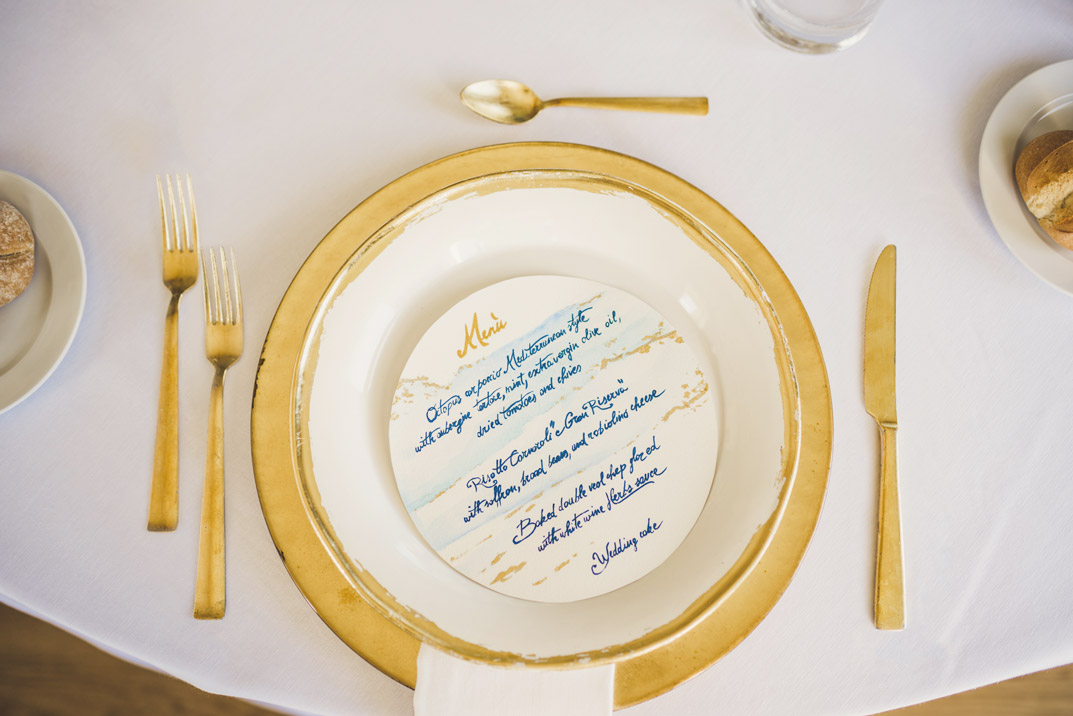 Menù
Octopus carpaccio Mediterranean style
with aubergine tartare, mint, extravergin olive oil,
dried tomatoes and chives
Risotto Carnaroli "Gran Riserva"
with saffron, broad beans, and robiolina cheese
Baked double veal chop glazed
with white wine Herbs sauce
Wedding cake